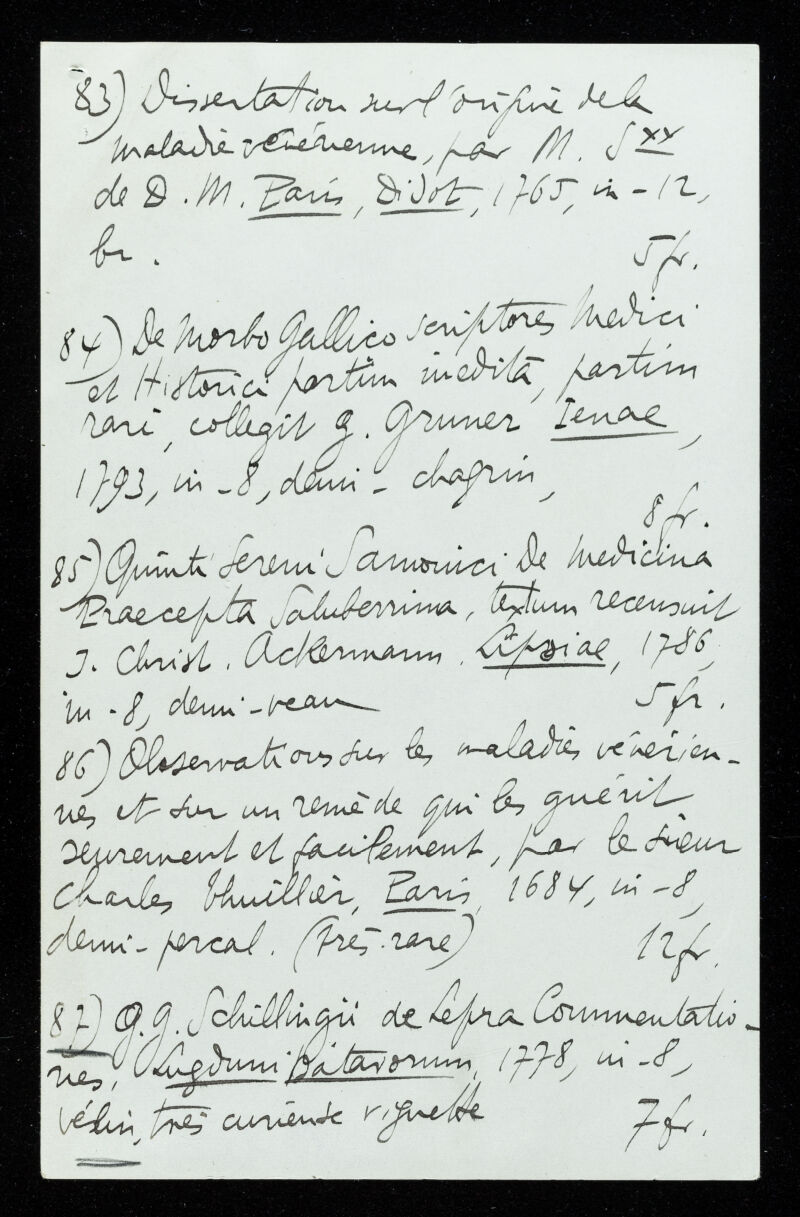 83) Dissertation sur l'origine de la
maladie vénérienne, par M. S xx
de D. M. Paris, Didot, 1765, in-12,
br. 5 fr.
84) De Morbo Gallico scriptores Medici
et Historici partim inediti, partim
rari, collegit g. Gruner Ienae,
1793, in-8, demi-chagrin,
8 fr.
85) Quinti Sereni Samonici De Medicina
Praecepta Saluberrima, textum recensuit
J. Christ. Ackermann. Lipsiae, 1786,
in-8, demi-veau 5 fr.
86) Observations sur les maladies vénérien-
nes et sur un remède qui les guérit
seurement et facilement, par le sieur
Charles Thuillier, Paris, 1684, in-8,
demi-percal. (très rare) 12 fr.
87) G. G. Schillingii de Lepra Commentatio-
nes, Lugduni Batavorum, 1778, in-8,
vélin, très curieuse vignette 7 fr.